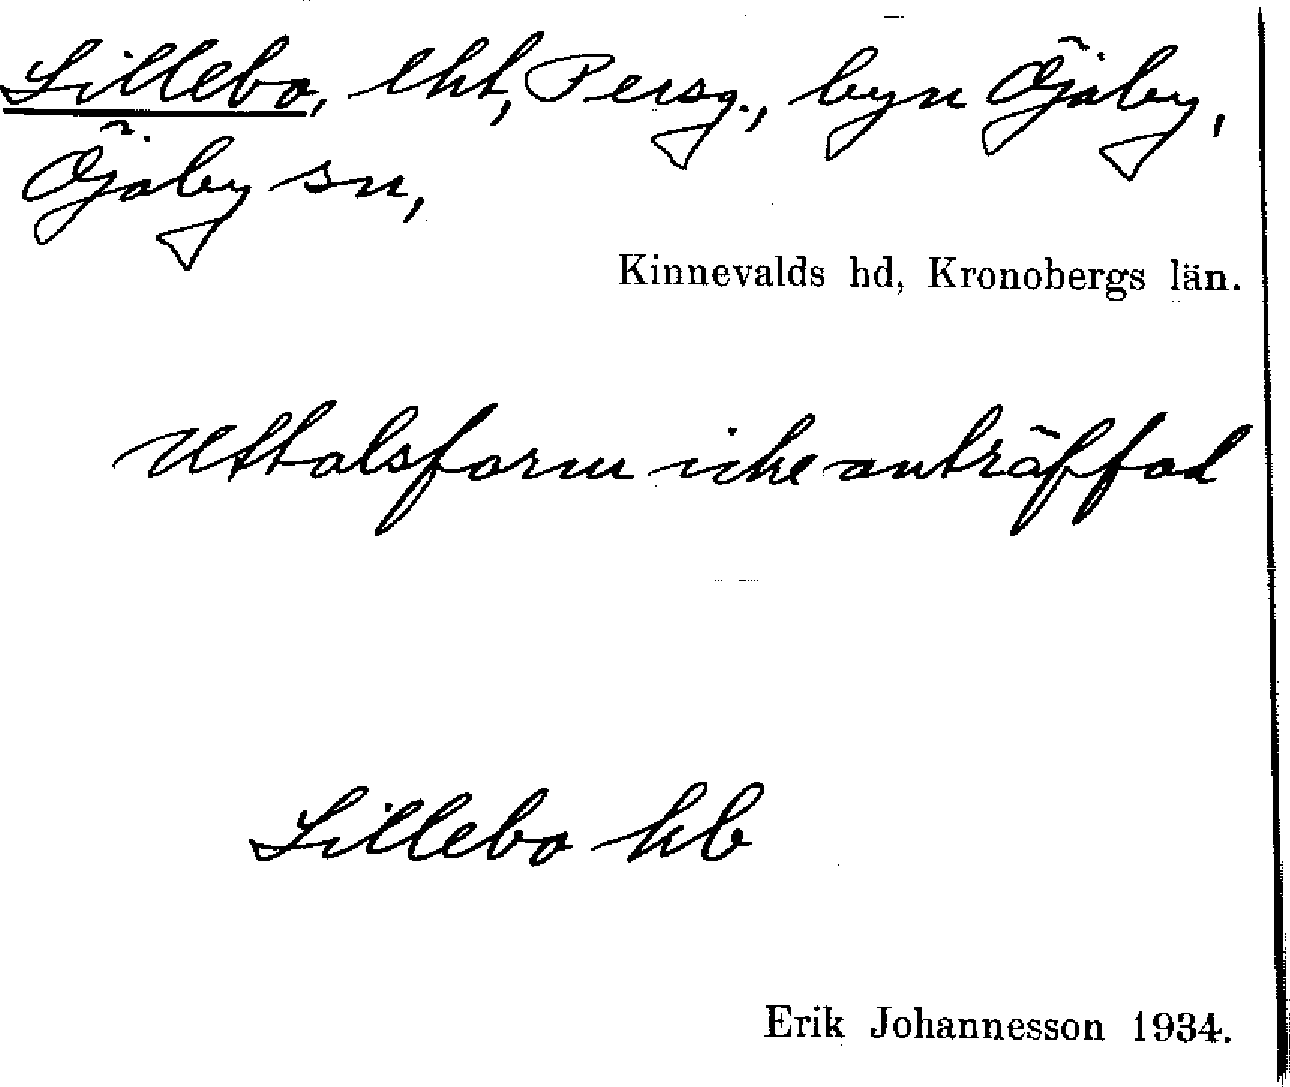 Lillebo, lht, Persg., byn Öjaby,
Öjaby sn,
Kinnevalds hd, Kronobergs län.
Uttalsform icke anträffad
Lillebo kb
Erik Johannesson 1934.